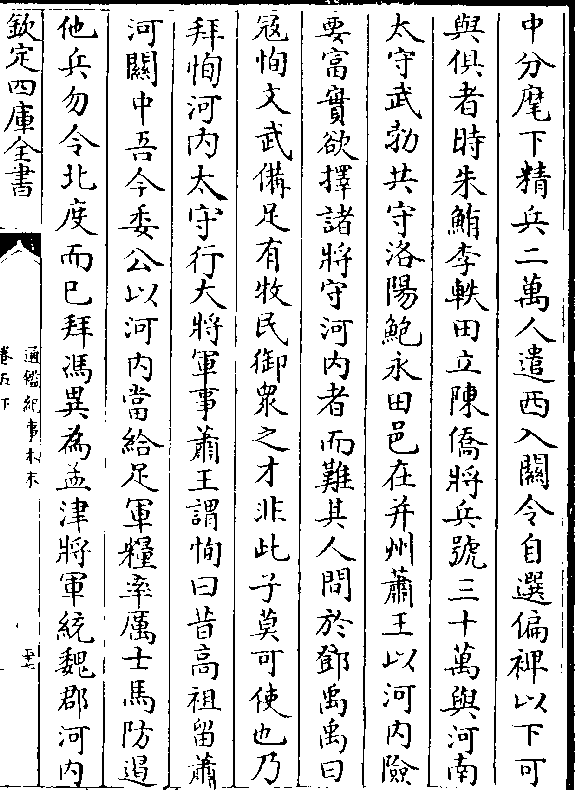 中分麾下精兵二萬人遣西入關令自選偏裨以下可
與俱者時朱鮪李軼田立陳僑將兵號三十萬與河南
太守武勃共守洛陽鮑永田邑在并州蕭王以河内險
要富實欲擇諸將守河内者而難其人問於鄧禹禹曰
冦恂文武備足有牧民御衆之才非此子莫可使也乃
拜恂河内太守行大將軍事蕭王謂恂曰昔高祖留蕭
河關中吾今委公以河内當給足軍糧率厲士馬防遏
他兵勿令北度而已拜馮異為孟津將軍統魏郡河内
欽定四庫全書
通鑑紀事本末
卷五下